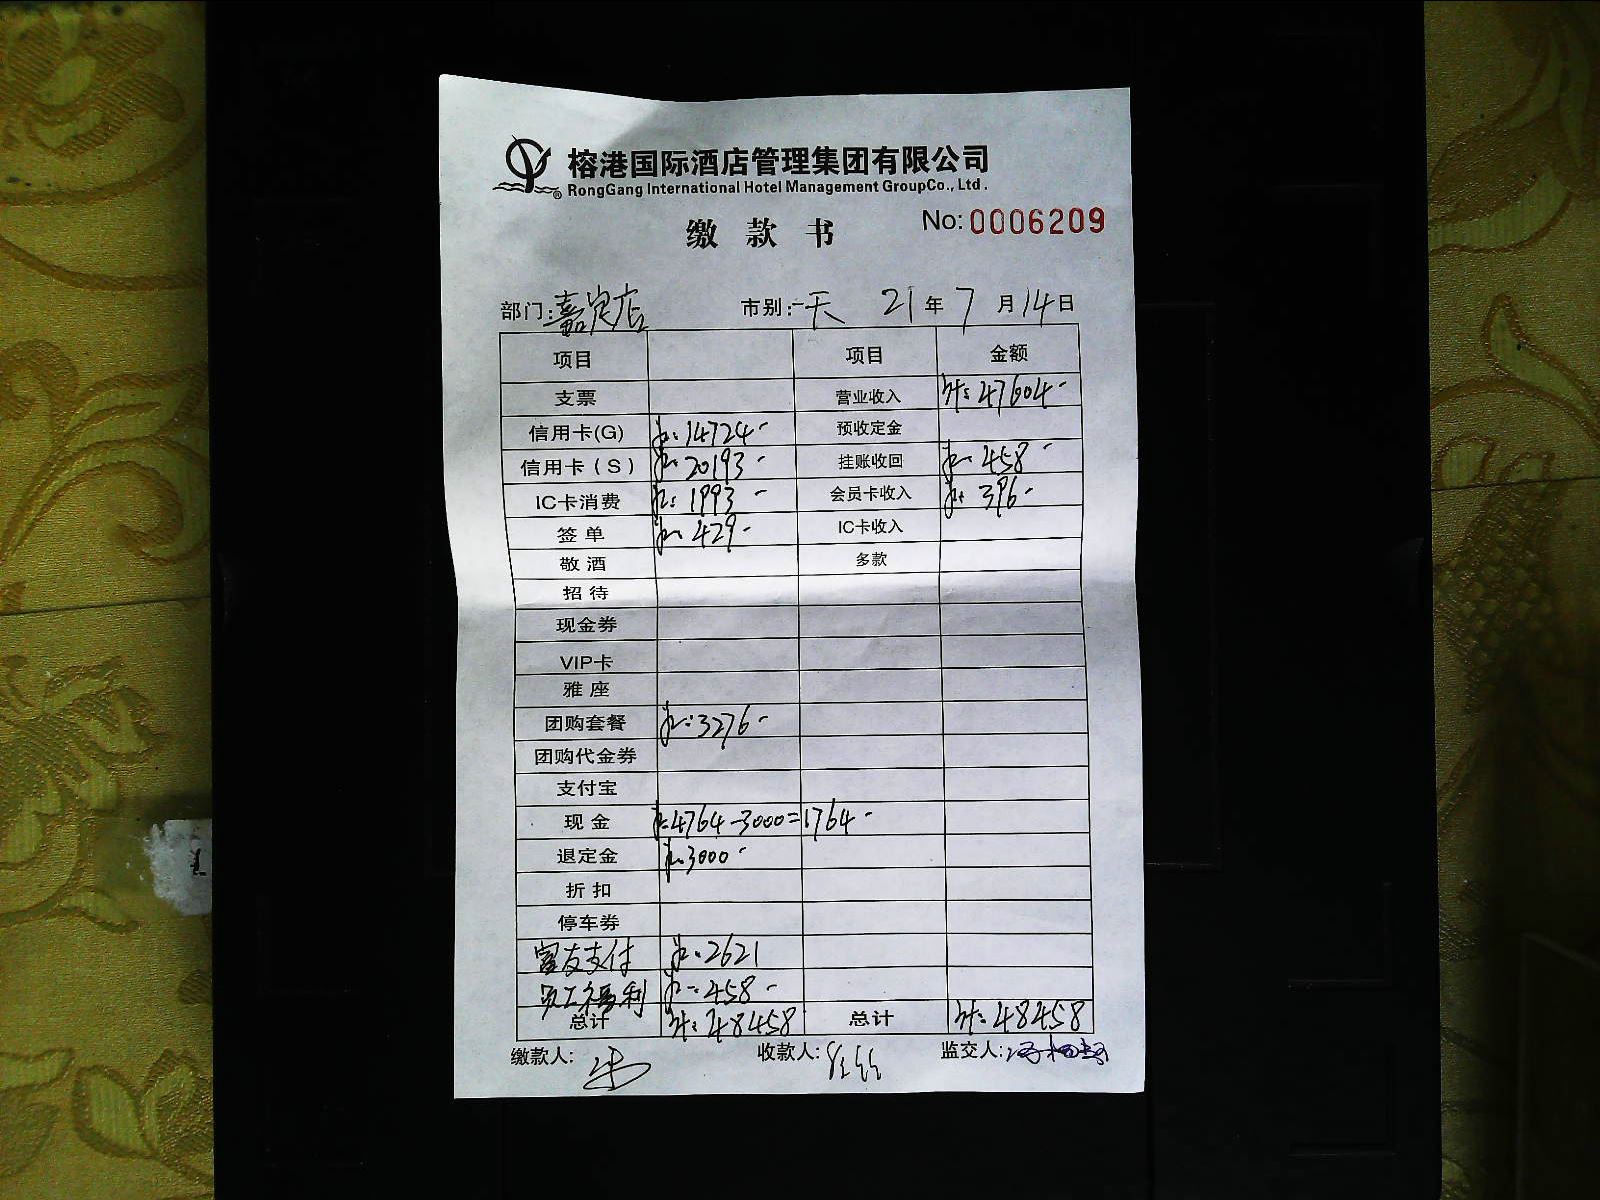 榕港国际酒店管理集团有限公司
RongGang International Hotel Management GroupCo., Ltd.
缴款书 No: 0006209
部门: 嘉定店 市别: 一天 21年7月14日
项目 项目 金额
支票 营业收入 计: 47604-
信用卡(G) 14724- 预收定金
信用卡(S) 20193- 挂账收回 458-
IC卡消费 1993- 会员卡收入 396-
签单 429- IC卡收入
敬酒 多款
招待
现金券
VIP卡
雅座
团购套餐 3276-
团购代金券
支付宝
现金 4764-3000=1764-
退定金 3000-
折扣
停车券
富友支付 2621
员工福利 458-
总计 计: 48458 总计 计: 48458
缴款人: 收款人: 监交人: